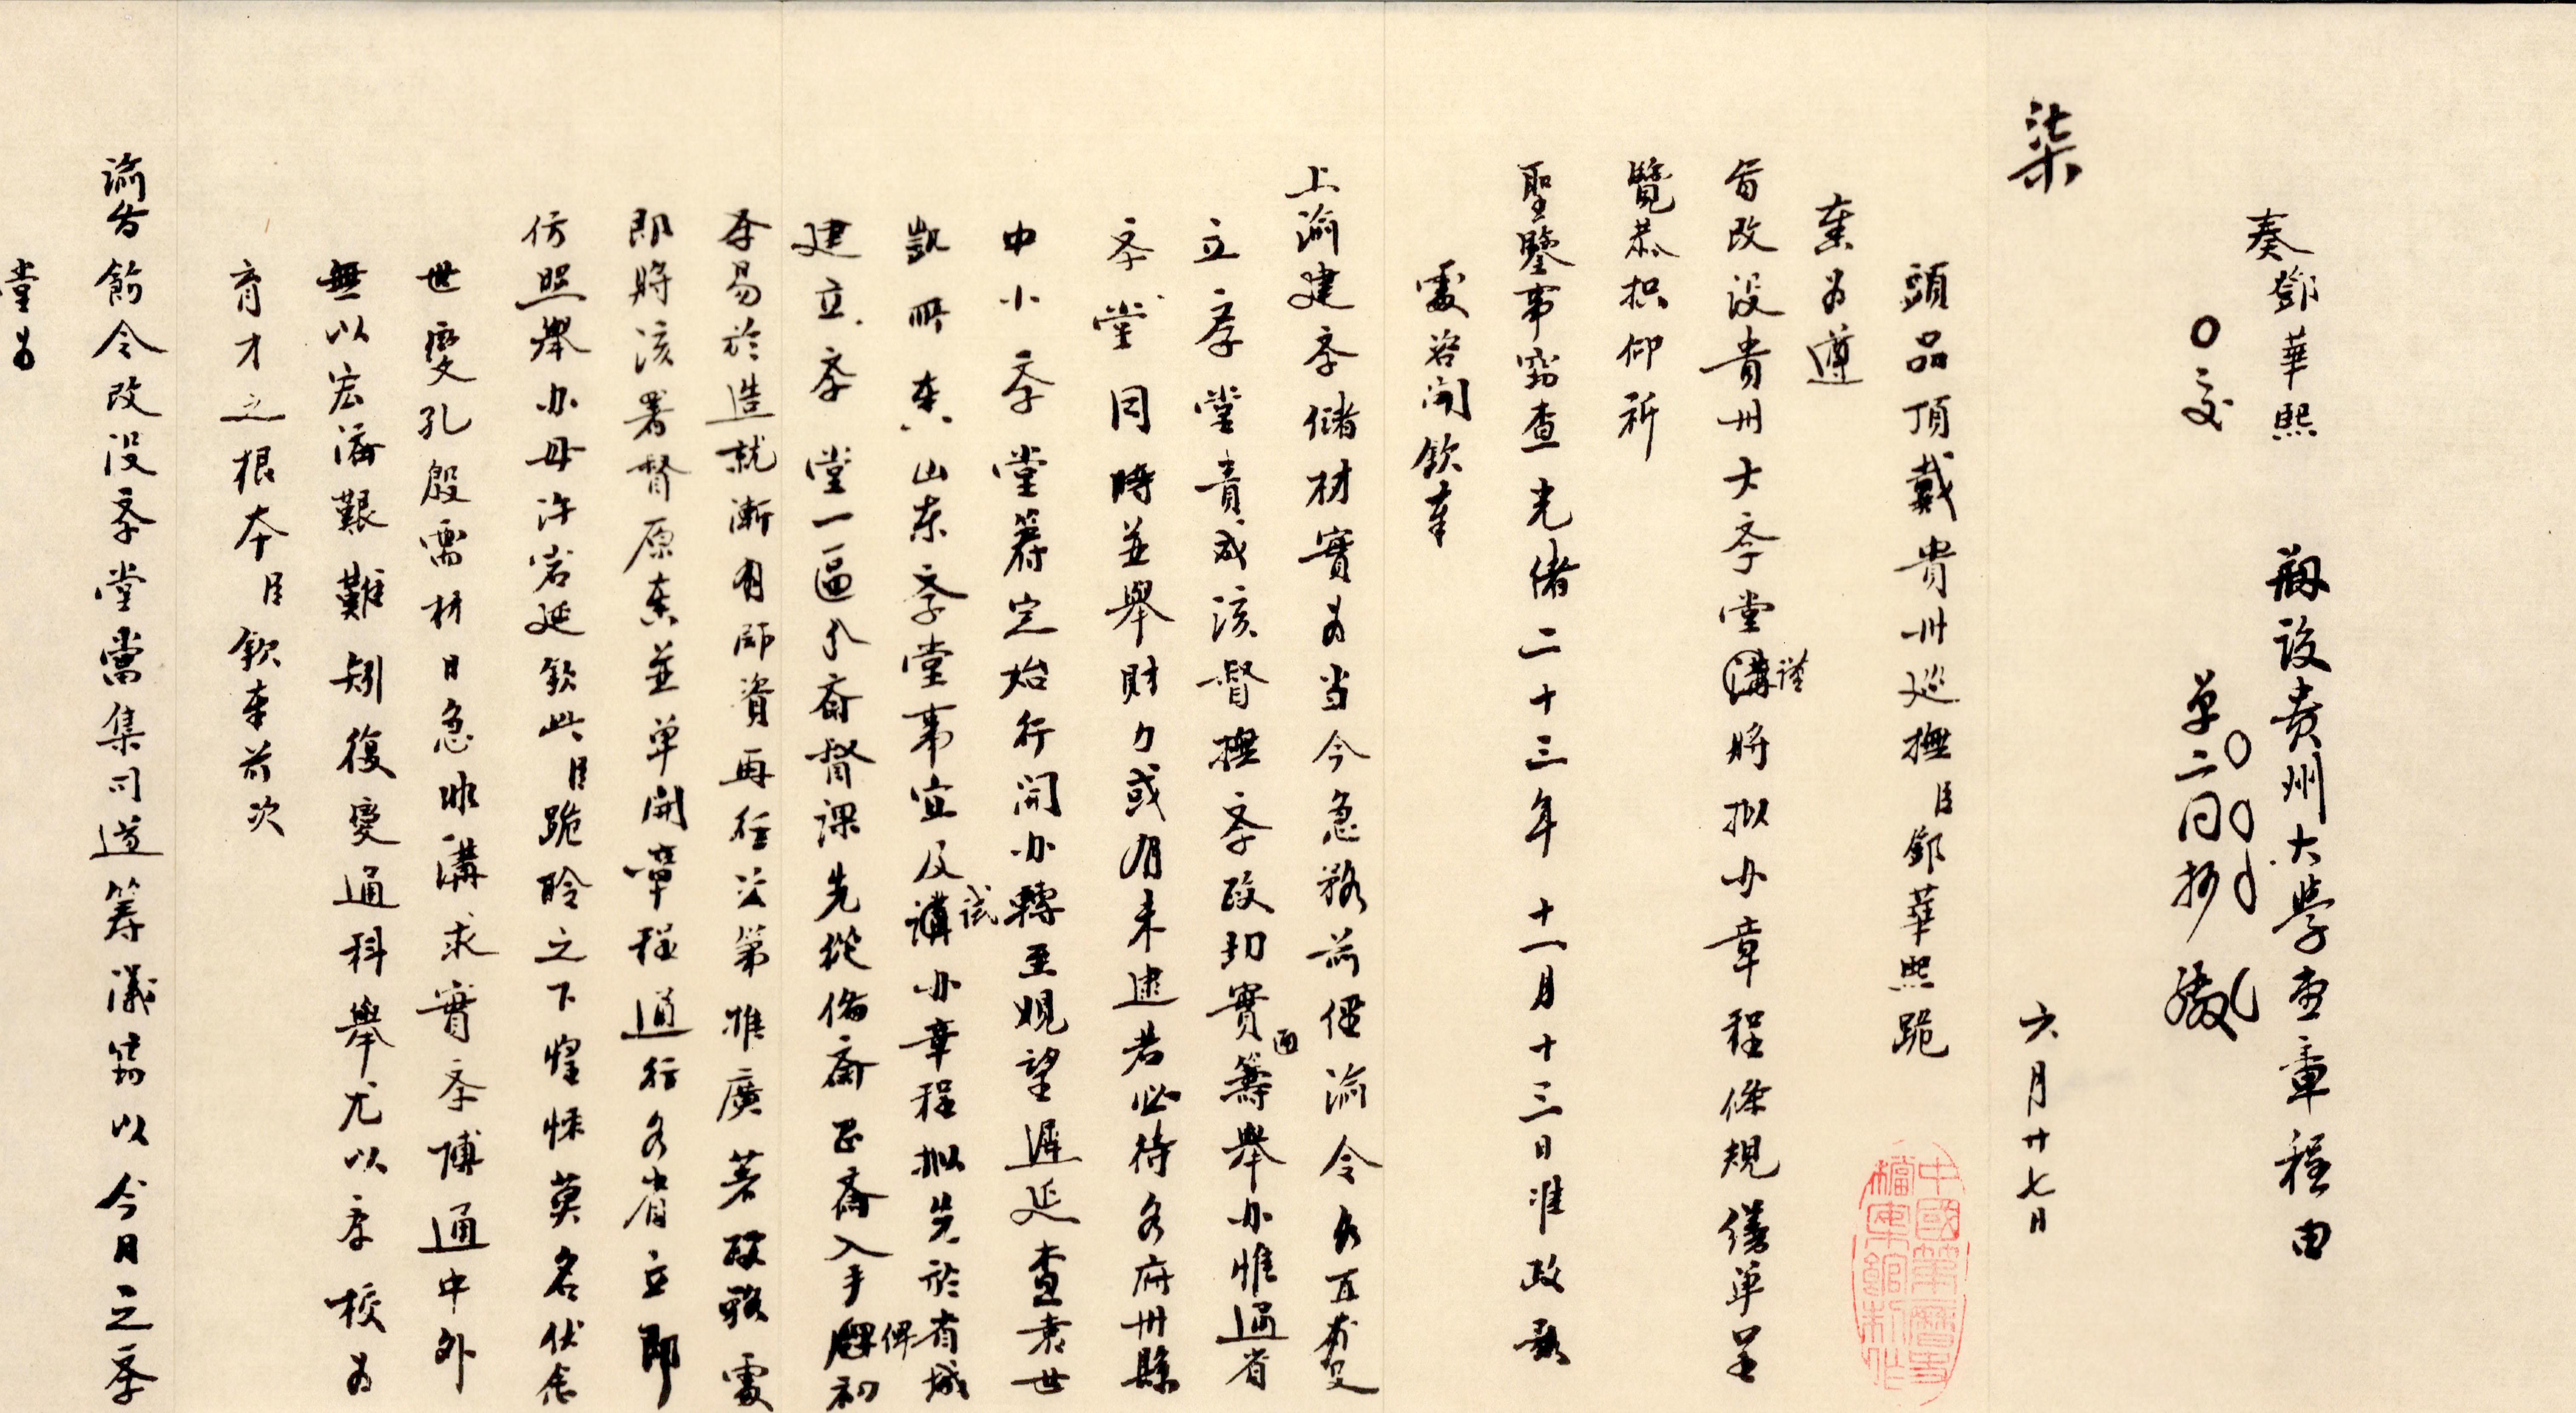 奏鄧華熙 擬設貴州大學堂章程由
〇交
單二同抄
柒 六月廿七日
頭品頂戴貴州巡撫臣鄧華熙跪
奏為遵
旨改設貴州大學堂謹將擬办章程條規繕单呈
覽恭摺仰祈
聖鑒事竊查光緒二十三年十一月十三日准政務
處咨開欽奉
上諭建學儲材實為當今急務前經諭令各直省
立學堂責成該督撫學政切實通籌舉办惟通省
學堂同時並舉財力或有未逮若必待各府州縣
中小學堂籌定始行開办轉至觀望遲延查袁世
凱所奏山东學堂事宜及試办章程拟先於省城
建立學堂一區分齋督課先從備齋正齋入手俾初
學易於造就漸有師資再行次第推廣著政務處
即將該署督原奏並单開章程通行各省立即
仿照舉办毋許宕延欽此臣跪聆之下惶悚莫名伏念
世變孔殷需材日急非講求實學博通中外
無以宏濟艱難矧復變通科舉尤以學校為
育才之根本臣欽奉前次
諭旨飭令改設學堂當集司道籌議竊以今日之學
堂為
中國第一歷史檔案館制作